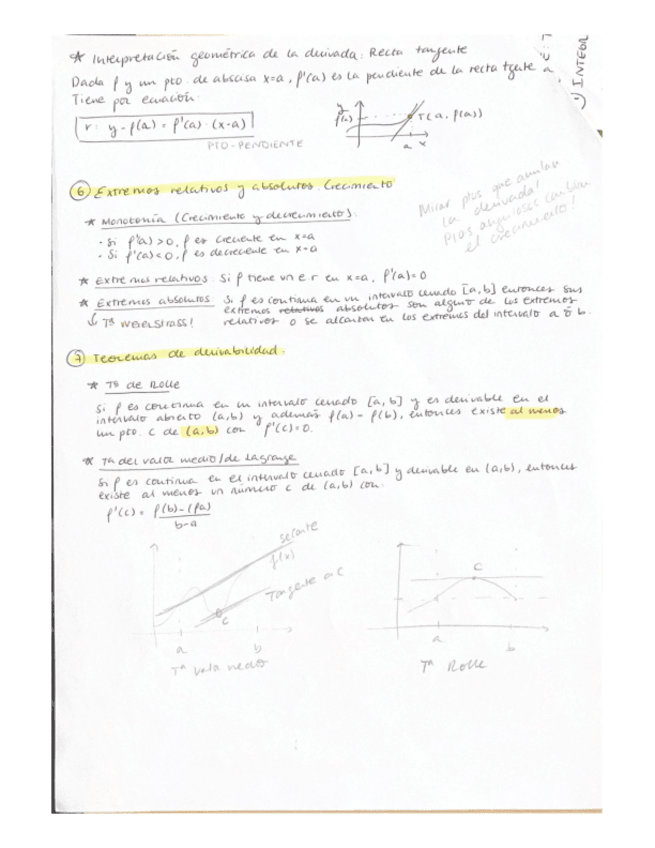 * Interpretación geométrica de la derivada: Recta tangente
Dada f y un pto. de abscisa x=a, f'(a) es la pendiente de la recta tgente a
Tiene por ecuación:
r: y-f(a) = f'(a)·(x-a)
PTO-PENDIENTE
y
f(a)
T(a, f(a))
a x
INTEGR
⑥ Extremos relativos y absolutos. Crecimiento
* Monotonía (Crecimiento y decrecimiento):
· Si f'(a)>0, f es creciente en x=a
· Si f'(a)<0, f es decreciente en x=a
Mirar ptos que anulan
la derivada!
Ptos angulosos cambian
el crecimiento!
* Extremos relativos: Si f tiene un e.r en x=a, f'(a)=0
* Extremos absolutos: Si f es continua en un intervalo cerrado [a,b] entonces sus
extremos relativos absolutos son alguno de los extremos
relativos o se alcanzan en los extremos del intervalo a ó b.
↳ Tª WEIERSTRASS!
⑦ Teoremas de derivabilidad.
* Tª de Rolle
Si f es continua en un intervalo cerrado [a,b] y es derivable en el
intervalo abierto (a,b) y además f(a)=f(b), entonces existe al menos
un pto. c de (a,b) con f'(c)=0.
* Tª del valor medio/de Lagrange
Si f es continua en el intervalo cerrado [a,b] y derivable en (a,b), entonces
existe al menos un número c de (a,b) con:
f'(c) = f(b)-(fa)
b-a
secante
f(x)
Tangente a C
c
a b
Tª valor medio
C
a b
Tª Rolle